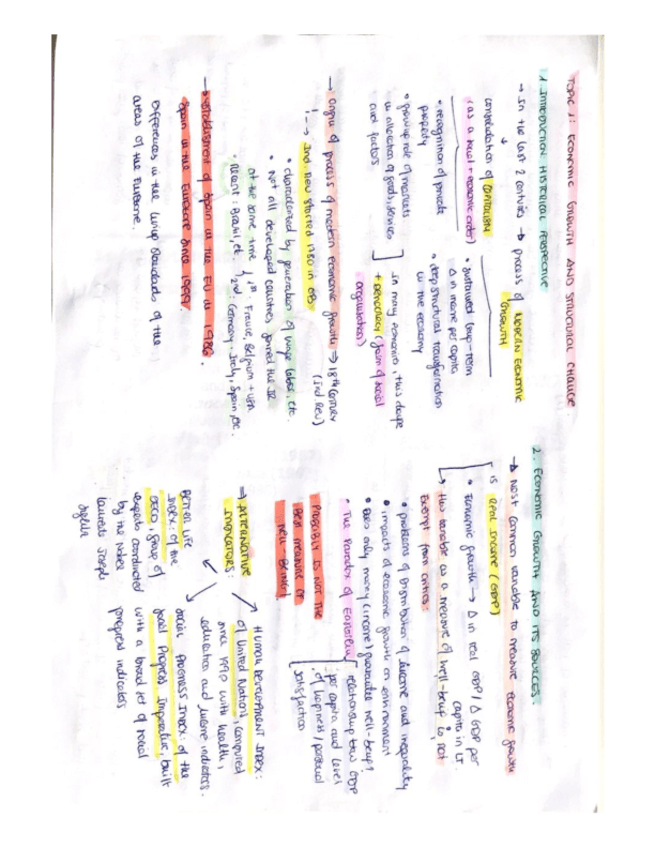 TOPIC 1: ECONOMIC GROWTH AND STRUCTURAL CHANGE.
1. INTRODUCTION HISTORICAL PERSPECTIVE
→ In the last 2 centuries → process of MODERN ECONOMIC
GROWTH
consolidation of CAPITALISM
(as a social + economic order)
• recognition of private
property
• growing role of markets
in allocation of goods, services
and factors
• sustained long-term
Δ in income per capita
• deep structural transformation
in the economy
In many economies, this change
+ DEMOCRACY (form of social
organisation)
→ Origin of process of modern economic growth → 18th century
(Ind. Rev)
→ Ind. Rev started 1780 in GB
• characterised by generation of wage labor, etc.
• Not all developed countries joined the IR
at the same time
1st: France, Belgium + USA
2nd: Germany, Italy, Spain, etc.
• Recent: Brazil, etc.
→ Establishment of Spain in the EU in 1986.
Spain in the Eurozone since 1999.
Differences in the living standards of the
areas of the Eurozone.
2. ECONOMIC GROWTH AND ITS SOURCES.
→ Most common variable to measure economic growth
is REAL INCOME (GDP)
• Economic growth → Δ in real GDP / Δ GDP per
capita in LT.
→ this variable as a measure of well-being is not
exempt from critics:
• problems of distribution of income and inequality
• impacts of economic growth on environment
• Does only money (income) guarantee well-being?
• The Paradox of Easterlin
relationship btw GDP
per capita and level
of happiness / personal
satisfaction
PROBABLY IS NOT THE
BEST MEASURE OF
WELL-BEING!
→ ALTERNATIVE
INDICATORS:
HUMAN DEVELOPMENT INDEX:
of United Nations, computed
since 1990 with health,
education and income indicators.
Social Progress Index: of the
Social Progress Imperative, built
with a broad set of social
progress indicators
BETTER LIFE
INDEX: of the
OECD, group of
experts coordinated
by the Nobel
laureate Joseph
Stiglitz